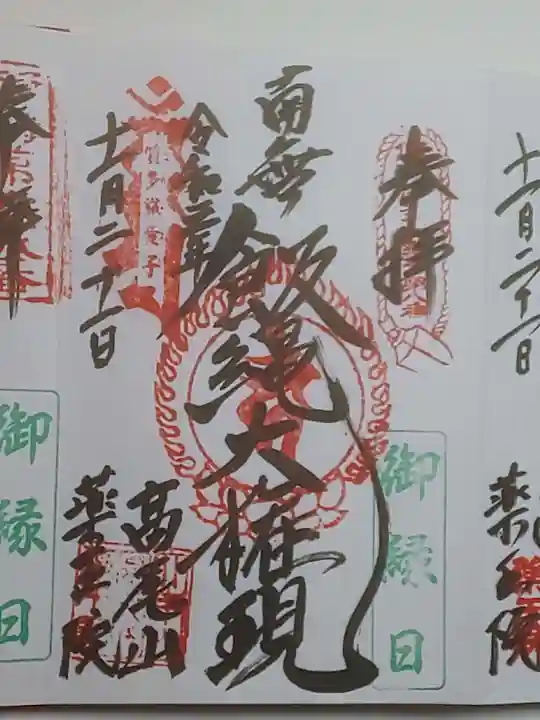 十一月二十一日
薬王院
奉拝
御縁日
南無
飯縄大権現
令和二年
十一月二十一日
高尾山
薬王院
奉拝
御縁日